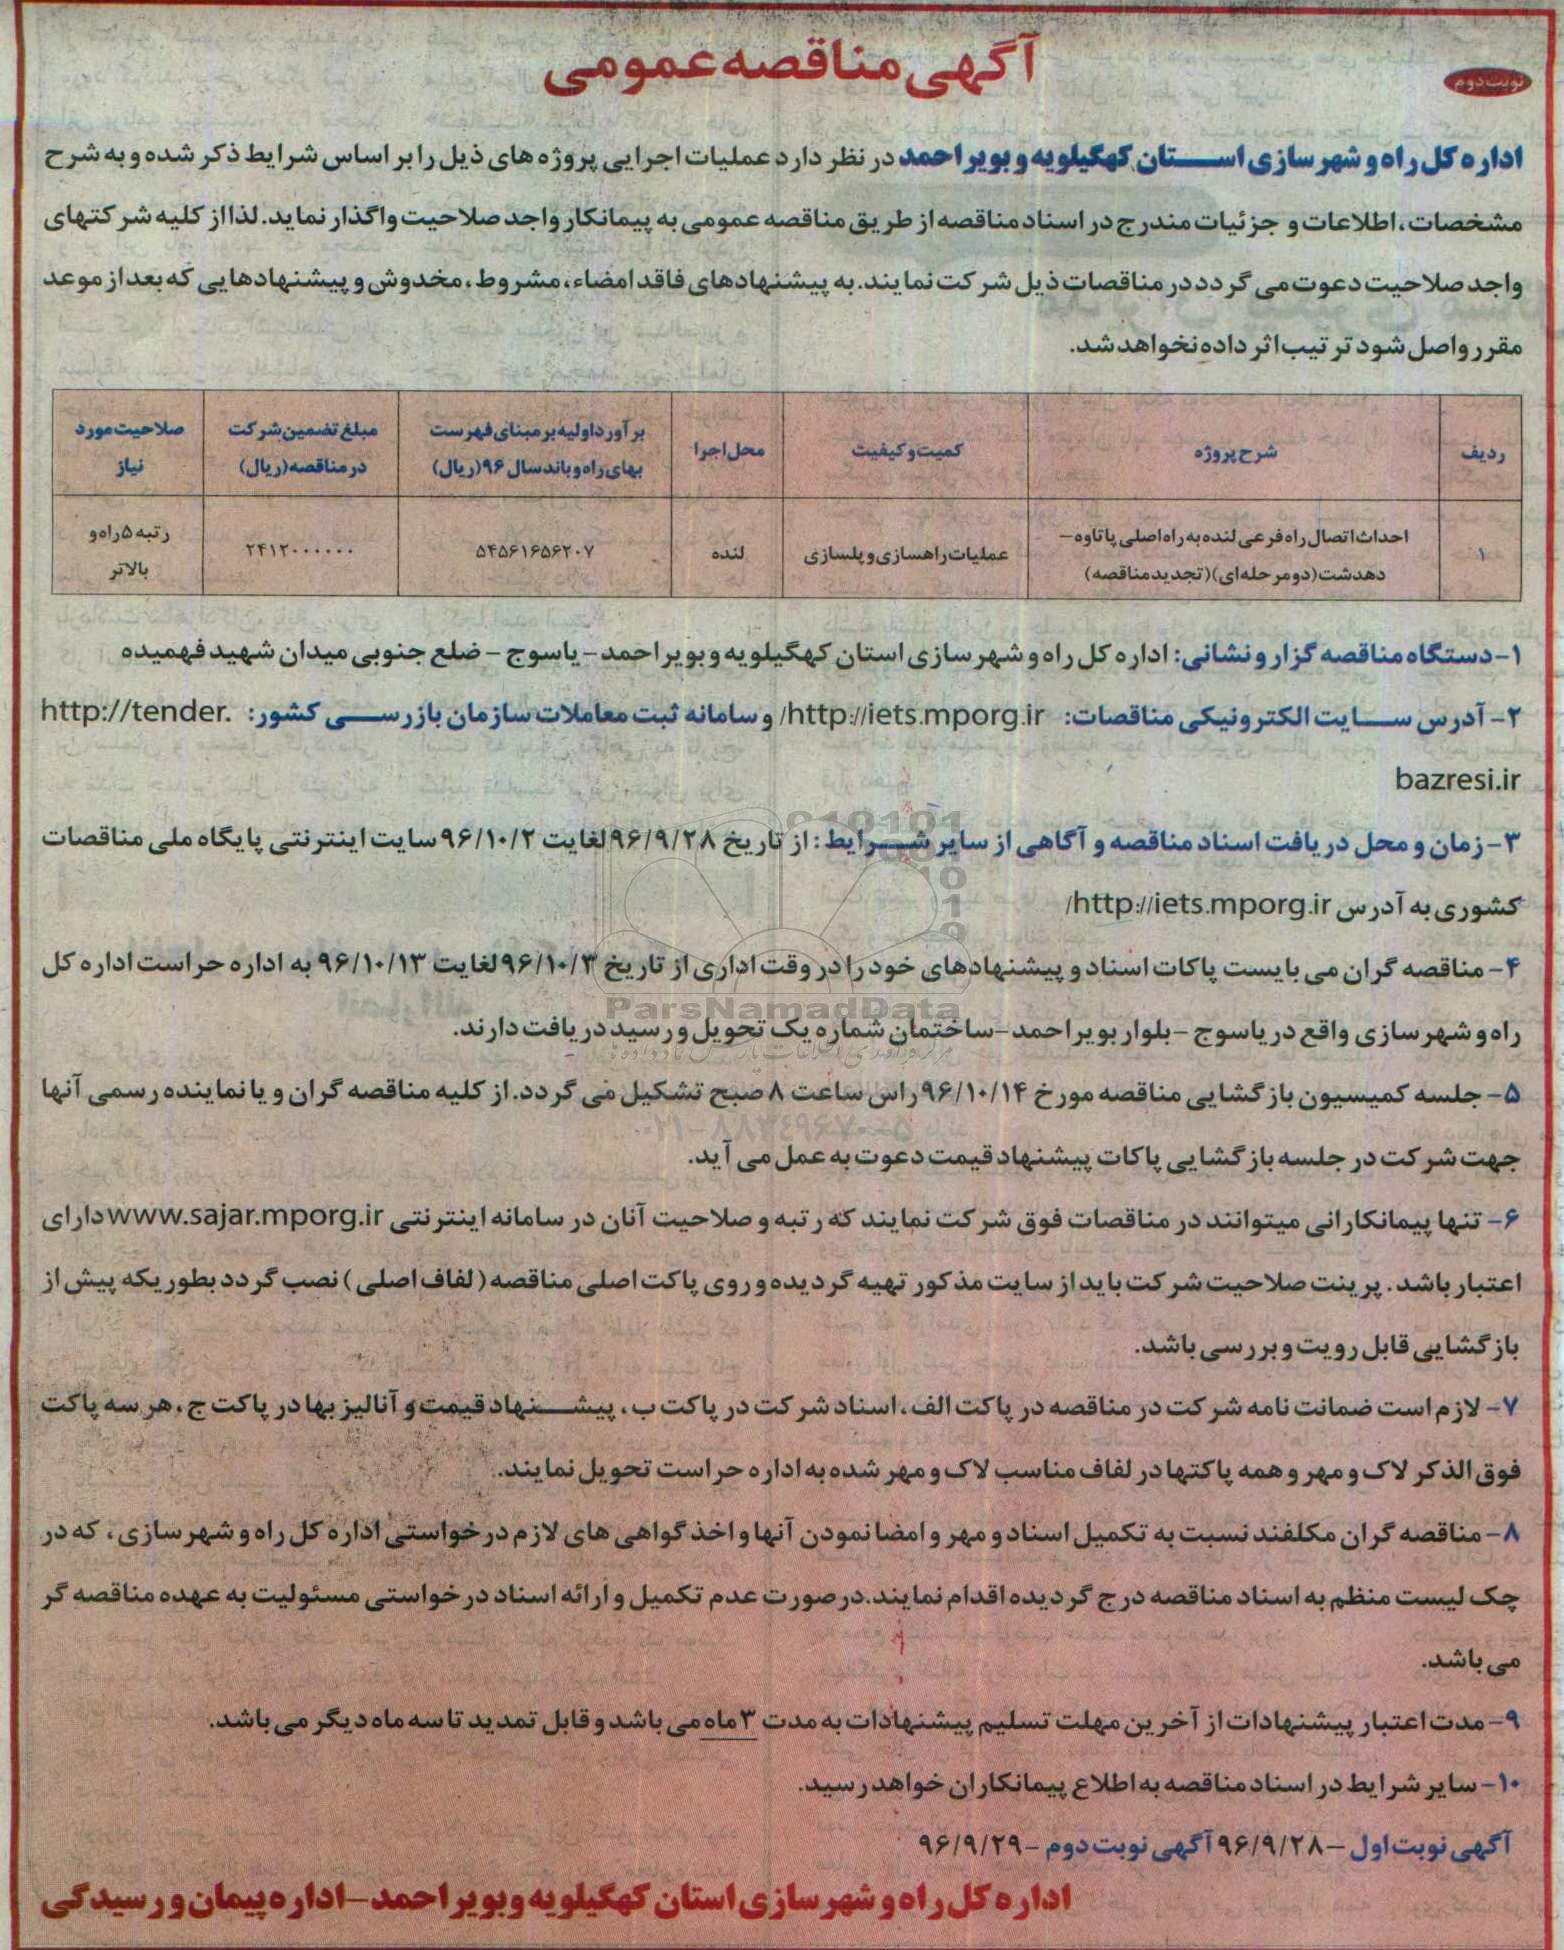 آگهی مناقصه عمومی
نوبت دوم
اداره کل راه و شهرسازی استان کهگیلویه و بویراحمد در نظر دارد عملیات اجرایی پروژه های ذیل را بر اساس شرایط ذکر شده و به شرح
مشخصات، اطلاعات و جزئیات مندرج در اسناد مناقصه از طریق مناقصه عمومی به پیمانکار واجد صلاحیت واگذار نماید. لذا از کلیه شرکتهای
واجد صلاحیت دعوت می گردد در مناقصات ذیل شرکت نمایند. به پیشنهادهای فاقد امضاء، مشروط، مخدوش و پیشنهادهایی که بعد از موعد
مقرر واصل شود ترتیب اثر داده نخواهد شد.
ردیف
شرح پروژه
کمیت و کیفیت
محل اجرا
برآورد اولیه بر مبنای فهرست
بهای راه و باند سال ۹۶ (ریال)
مبلغ تضمین شرکت
در مناقصه (ریال)
صلاحیت مورد
نیاز
۱
احداث اتصال راه فرعی لنده به راه اصلی پاتاوه –
دهدشت (دو مرحله ای) (تجدید مناقصه)
عملیات راهسازی و پلسازی
لنده
۵۴۵۶۱۶۵۶۲۰۷
۲۴۱۲۰۰۰۰۰۰
رتبه ۵ راه و
بالاتر
۱- دستگاه مناقصه گزار و نشانی: اداره کل راه و شهرسازی استان کهگیلویه و بویراحمد – یاسوج – ضلع جنوبی میدان شهید فهمیده
۲- آدرس سایت الکترونیکی مناقصات: http://iets.mporg.ir/ و سامانه ثبت معاملات سازمان بازرسی کشور: http://tender.
bazresi.ir
۳- زمان و محل دریافت اسناد مناقصه و آگاهی از سایر شرایط: از تاریخ ۹۶/۹/۲۸ لغایت ۹۶/۱۰/۲ سایت اینترنتی پایگاه ملی مناقصات
کشوری به آدرس http://iets.mporg.ir/
۴- مناقصه گران می بایست پاکات اسناد و پیشنهادهای خود را در وقت اداری از تاریخ ۹۶/۱۰/۳ لغایت ۹۶/۱۰/۱۳ به اداره حراست اداره کل
راه و شهرسازی واقع در یاسوج – بلوار بویراحمد – ساختمان شماره یک تحویل و رسید دریافت دارند.
ParsNamadData
۰۲۱-۸۸۳۴۹۶۷۰-۵
۵- جلسه کمیسیون بازگشایی مناقصه مورخ ۹۶/۱۰/۱۴ راس ساعت ۸ صبح تشکیل می گردد. از کلیه مناقصه گران و یا نماینده رسمی آنها
جهت شرکت در جلسه بازگشایی پاکات پیشنهاد قیمت دعوت به عمل می آید.
۶- تنها پیمانکارانی میتوانند در مناقصات فوق شرکت نمایند که رتبه و صلاحیت آنان در سامانه اینترنتی www.sajar.mporg.ir دارای
اعتبار باشد. پرینت صلاحیت شرکت باید از سایت مذکور تهیه گردیده و روی پاکت اصلی مناقصه (لفاف اصلی) نصب گردد بطوریکه پیش از
بازگشایی قابل رویت و بررسی باشد.
۷- لازم است ضمانت نامه شرکت در مناقصه در پاکت الف، اسناد شرکت در پاکت ب، پیشنهاد قیمت و آنالیز بها در پاکت ج، هر سه پاکت
فوق الذکر لاک و مهر و همه پاکتها در لفاف مناسب لاک و مهر شده به اداره حراست تحویل نمایند.
۸- مناقصه گران مکلفند نسبت به تکمیل اسناد و مهر و امضا نمودن آنها و اخذ گواهی های لازم درخواستی اداره کل راه و شهرسازی، که در
چک لیست منظم به اسناد مناقصه درج گردیده اقدام نمایند. در صورت عدم تکمیل و ارائه اسناد درخواستی مسئولیت به عهده مناقصه گر
می باشد.
۹- مدت اعتبار پیشنهادات از آخرین مهلت تسلیم پیشنهادات به مدت ۳ ماه می باشد و قابل تمدید تا سه ماه دیگر می باشد.
۱۰- سایر شرایط در اسناد مناقصه به اطلاع پیمانکاران خواهد رسید.
آگهی نوبت اول – ۹۶/۹/۲۸ آگهی نوبت دوم – ۹۶/۹/۲۹
اداره کل راه و شهرسازی استان کهگیلویه و بویراحمد – اداره پیمان و رسیدگی